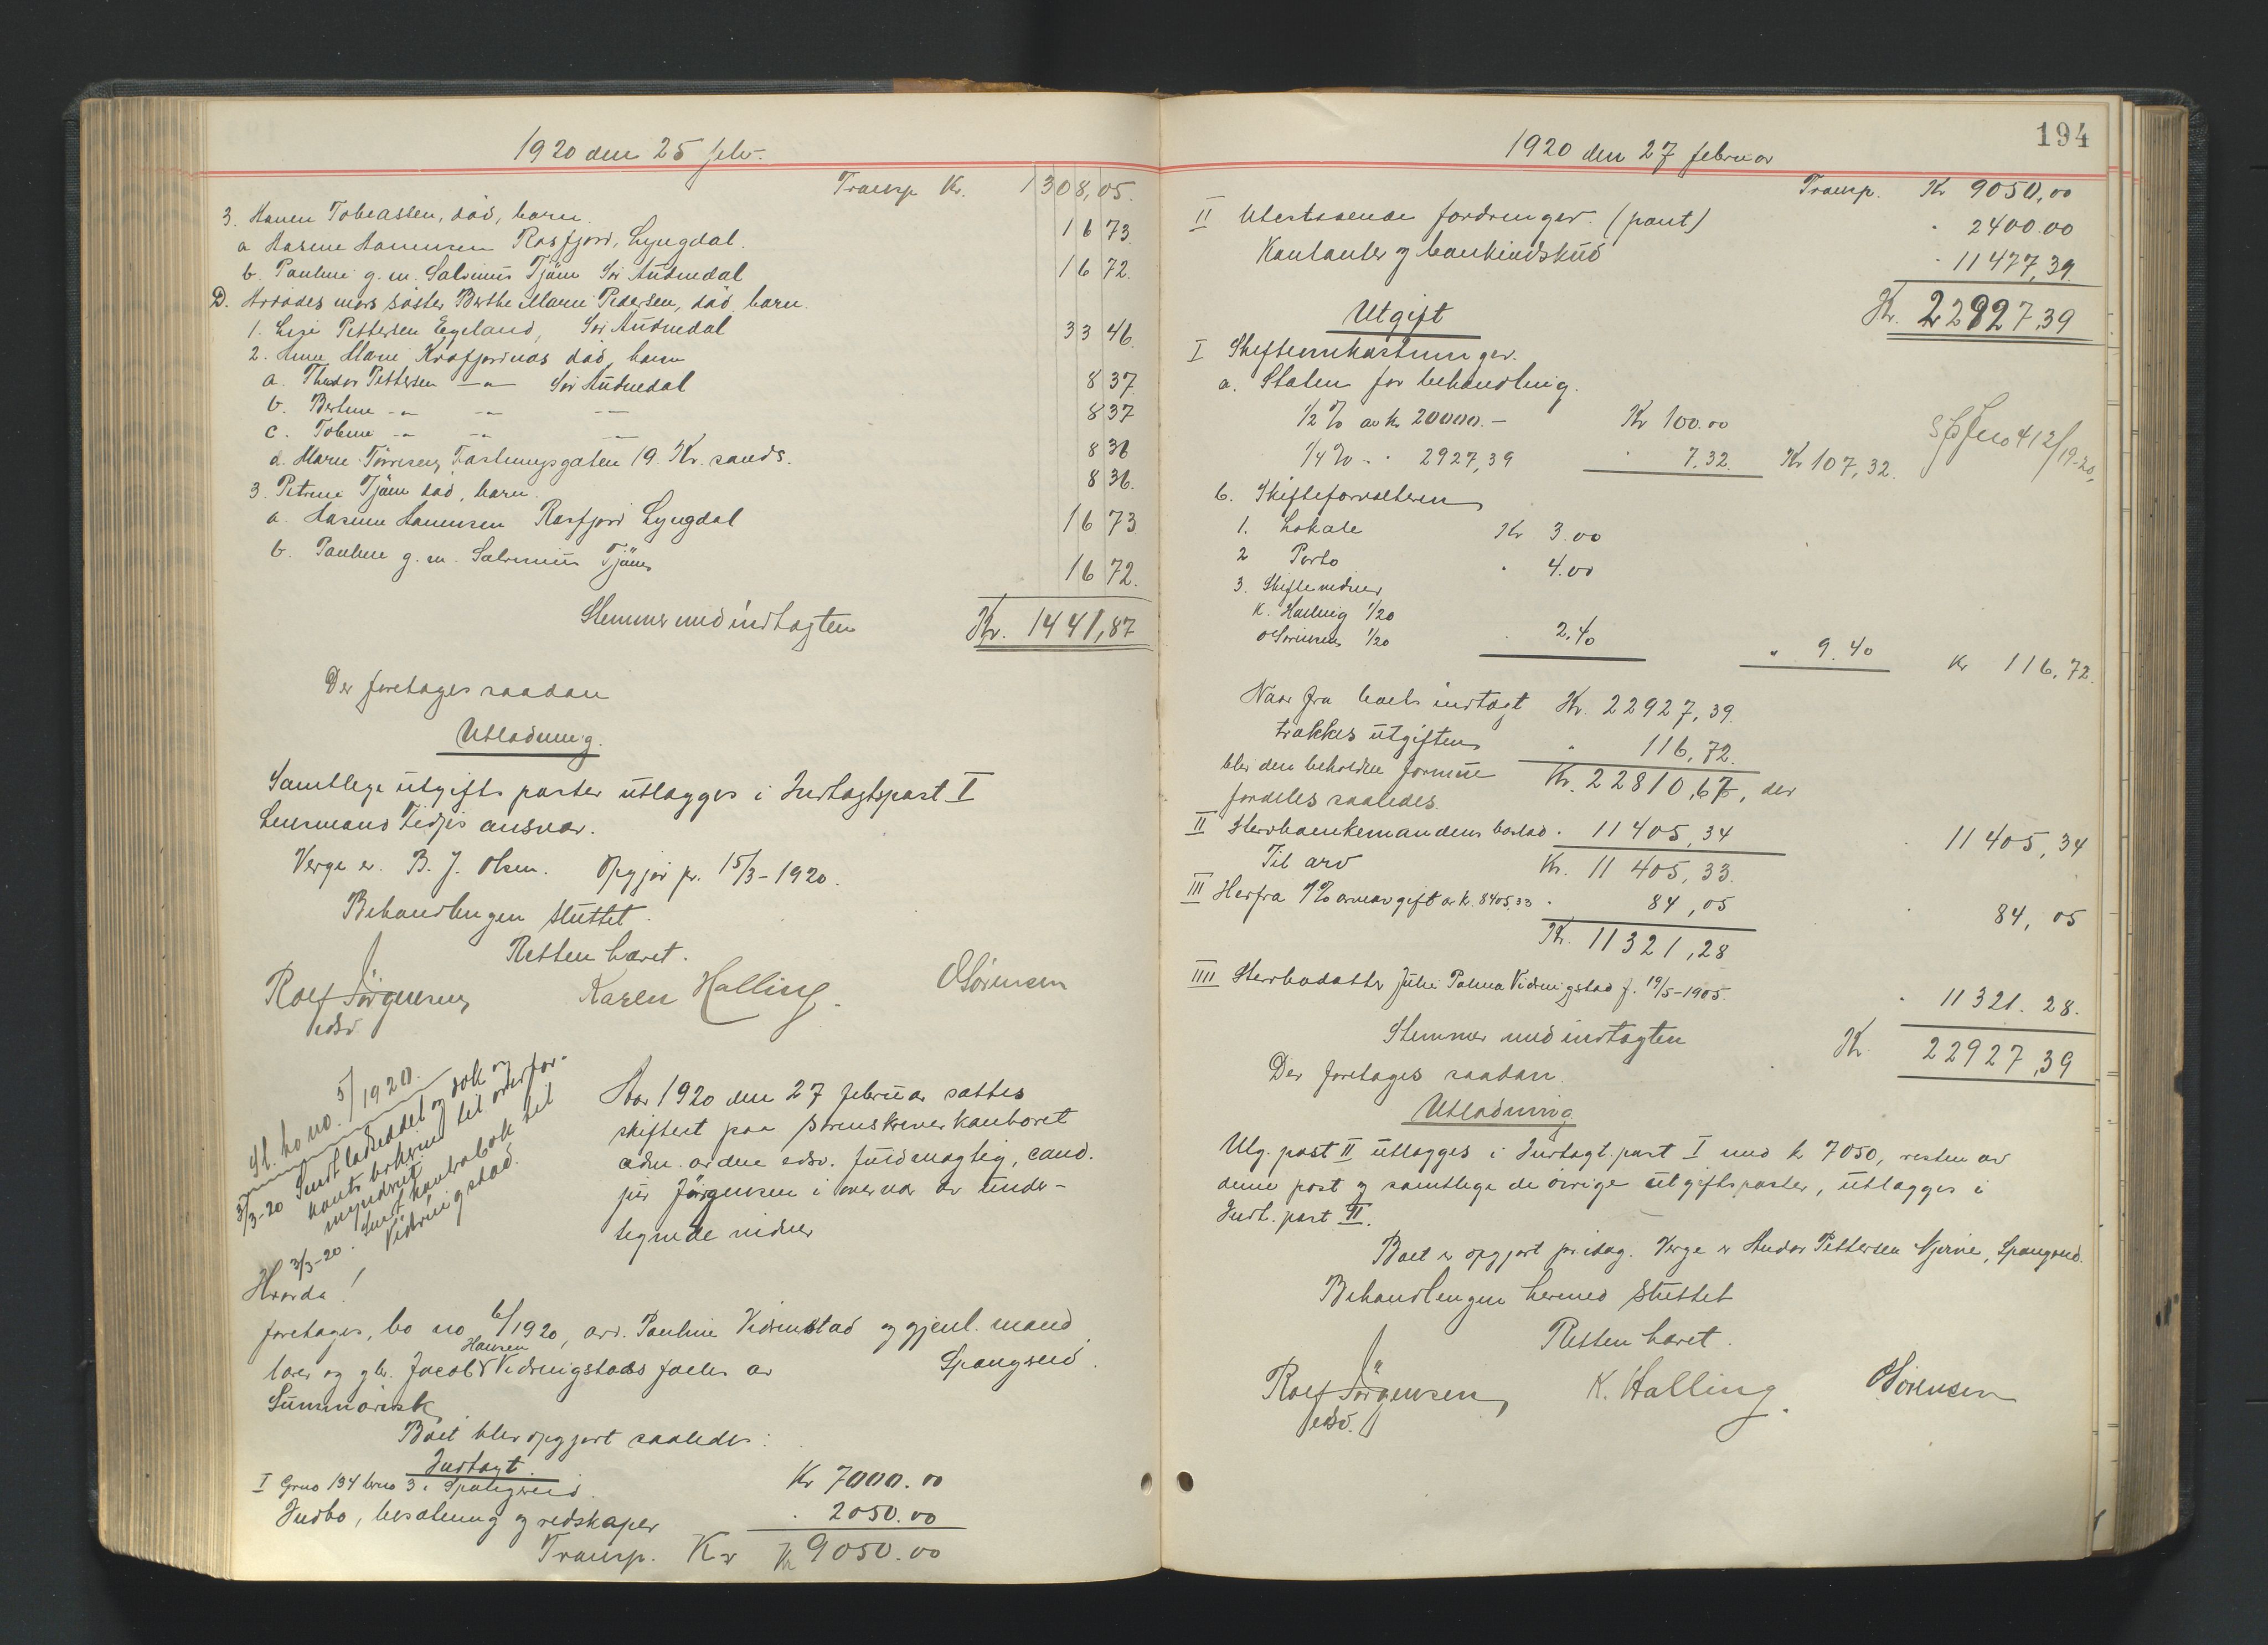 1920 den 25 febr.
Transp Kr. 1308,05.
3. Hanen Tobiassen, död, barn.
a Aasine Hanensen Rosfjord, Lyngdal. 16 73
b. Pauline g. m. Salomus Tjöm Sör Audnedal 16 72.
D. Avdödes mors söster Berthe Marie Pedersen, död, barn.
1. Lise Pettersen Egeland, Sör Audnedal 33 46.
2. Anne Marie död, barn
a. Theodor Pettersen -"- Sör Audnedal 8 37
b. Bertine -"- -"- -"- 8 37
c. Tobine -"- -"- -"- 8 36
d. Marie Törresen, Fæstningsgaten 19. Kr. sands. 8 36.
3. Petrine Tjöm död, barn.
a. Aasine Hanensen Rosfjord Lyngdal 16 73
b. Pauline g. m. Salomus Tjöm 16 72.
Stemmer med indtægten Kr. 1441,87
Der foretages saadan
Utlodning.
Samtlige utgiftsposter utlægges i Indtægtspost I
Lensmand Fidjes ansvar.
Verge er B. J. Olsen. Opgjör pr. 15/3-1920.
Behandlingen sluttet.
Retten hævet.
Rolf Jörgensen Karen Halling. O Sörensen
edsv.
Sk. bo no. 5/1920.
3/3-20 Sendt loddseddel og dok og
konts bekrind til overfor-
mynderiet
3/3-20. Sendt kontrabok til
Vidringstad.
Aar 1920 den 27 februar sattes
skifteret paa sorenskriverkontoret
adm. av den edsv. fuldmægtig, cand.
jur Jörgensen i overvær av under-
tegnede vidner
Hvorda!
foretages, bo no 6/1920, avd. Pauline Vidringstad og gjenl. mand
lærer og gbr. Jacob Hansen Vidringstads fælles av Spangereid.
Summarisk.
Boet blev opgjort saaledes:
Indtægt.
I Grno 134 brno 3 i Spangereid. Kr 7000.00
Indbo, besætning og redskaper " 2050.00
Transp. Kr Kr 9050.00
194
1920 den 27 februar
Transp. Kr 9050,00
II Utestaaende fordringer. (pant) " 2400.00
Kontanter og bankindskud " 11477,39.
Kr. 22927,39
Utgift
I Skifteomkostninger.
a. Staten for behandling.
1/2 % av kr 20000.- Kr 100.00
1/4 % - " 2927,39 " 7,32. Kr 107,32.
412/19-20.
b. Skifteforvalteren
1. Lokale Kr 3.00
2 Porto " 4.00
3. Skiftevidner
K. Halling 1/20
O Sörensen 1/20 " 2.40 " 9.40 Kr 116,72.
Naar fra boets indtægt Kr. 22927,39.
trækkes utgiften " 116,72.
blir den beholdne formue Kr. 22810,67, der
fordeles saaledes.
II Sterboenkemandens boslod " 11405,34 " 11405,34
Til arv Kr. 11405,33.
III Herfra 1% arveavgift av kr. 8405,33 " 84,05 " 84,05
Kr. 11321,28
IIII Sterbodatter Julie Palma Vidringstad f. 19/5-1905. " 11321.28.
Stemmer med indtægten Kr. 22927,39
Der foretages saadan.
Utlodning
Utg. post II utlægges i Indtægt. post I med kr 7050, resten av
denne post og samtlige de övrige utgiftsposter, utlægges i
Indt. post II.
Boet er opgjort pr idag. Verge er Andor Pettersen Njerve, Spangereid.
Behandlingen hermed sluttet
Retten hævet.
Rolf Jörgensen, K. Halling. O Sörensen
edsv.